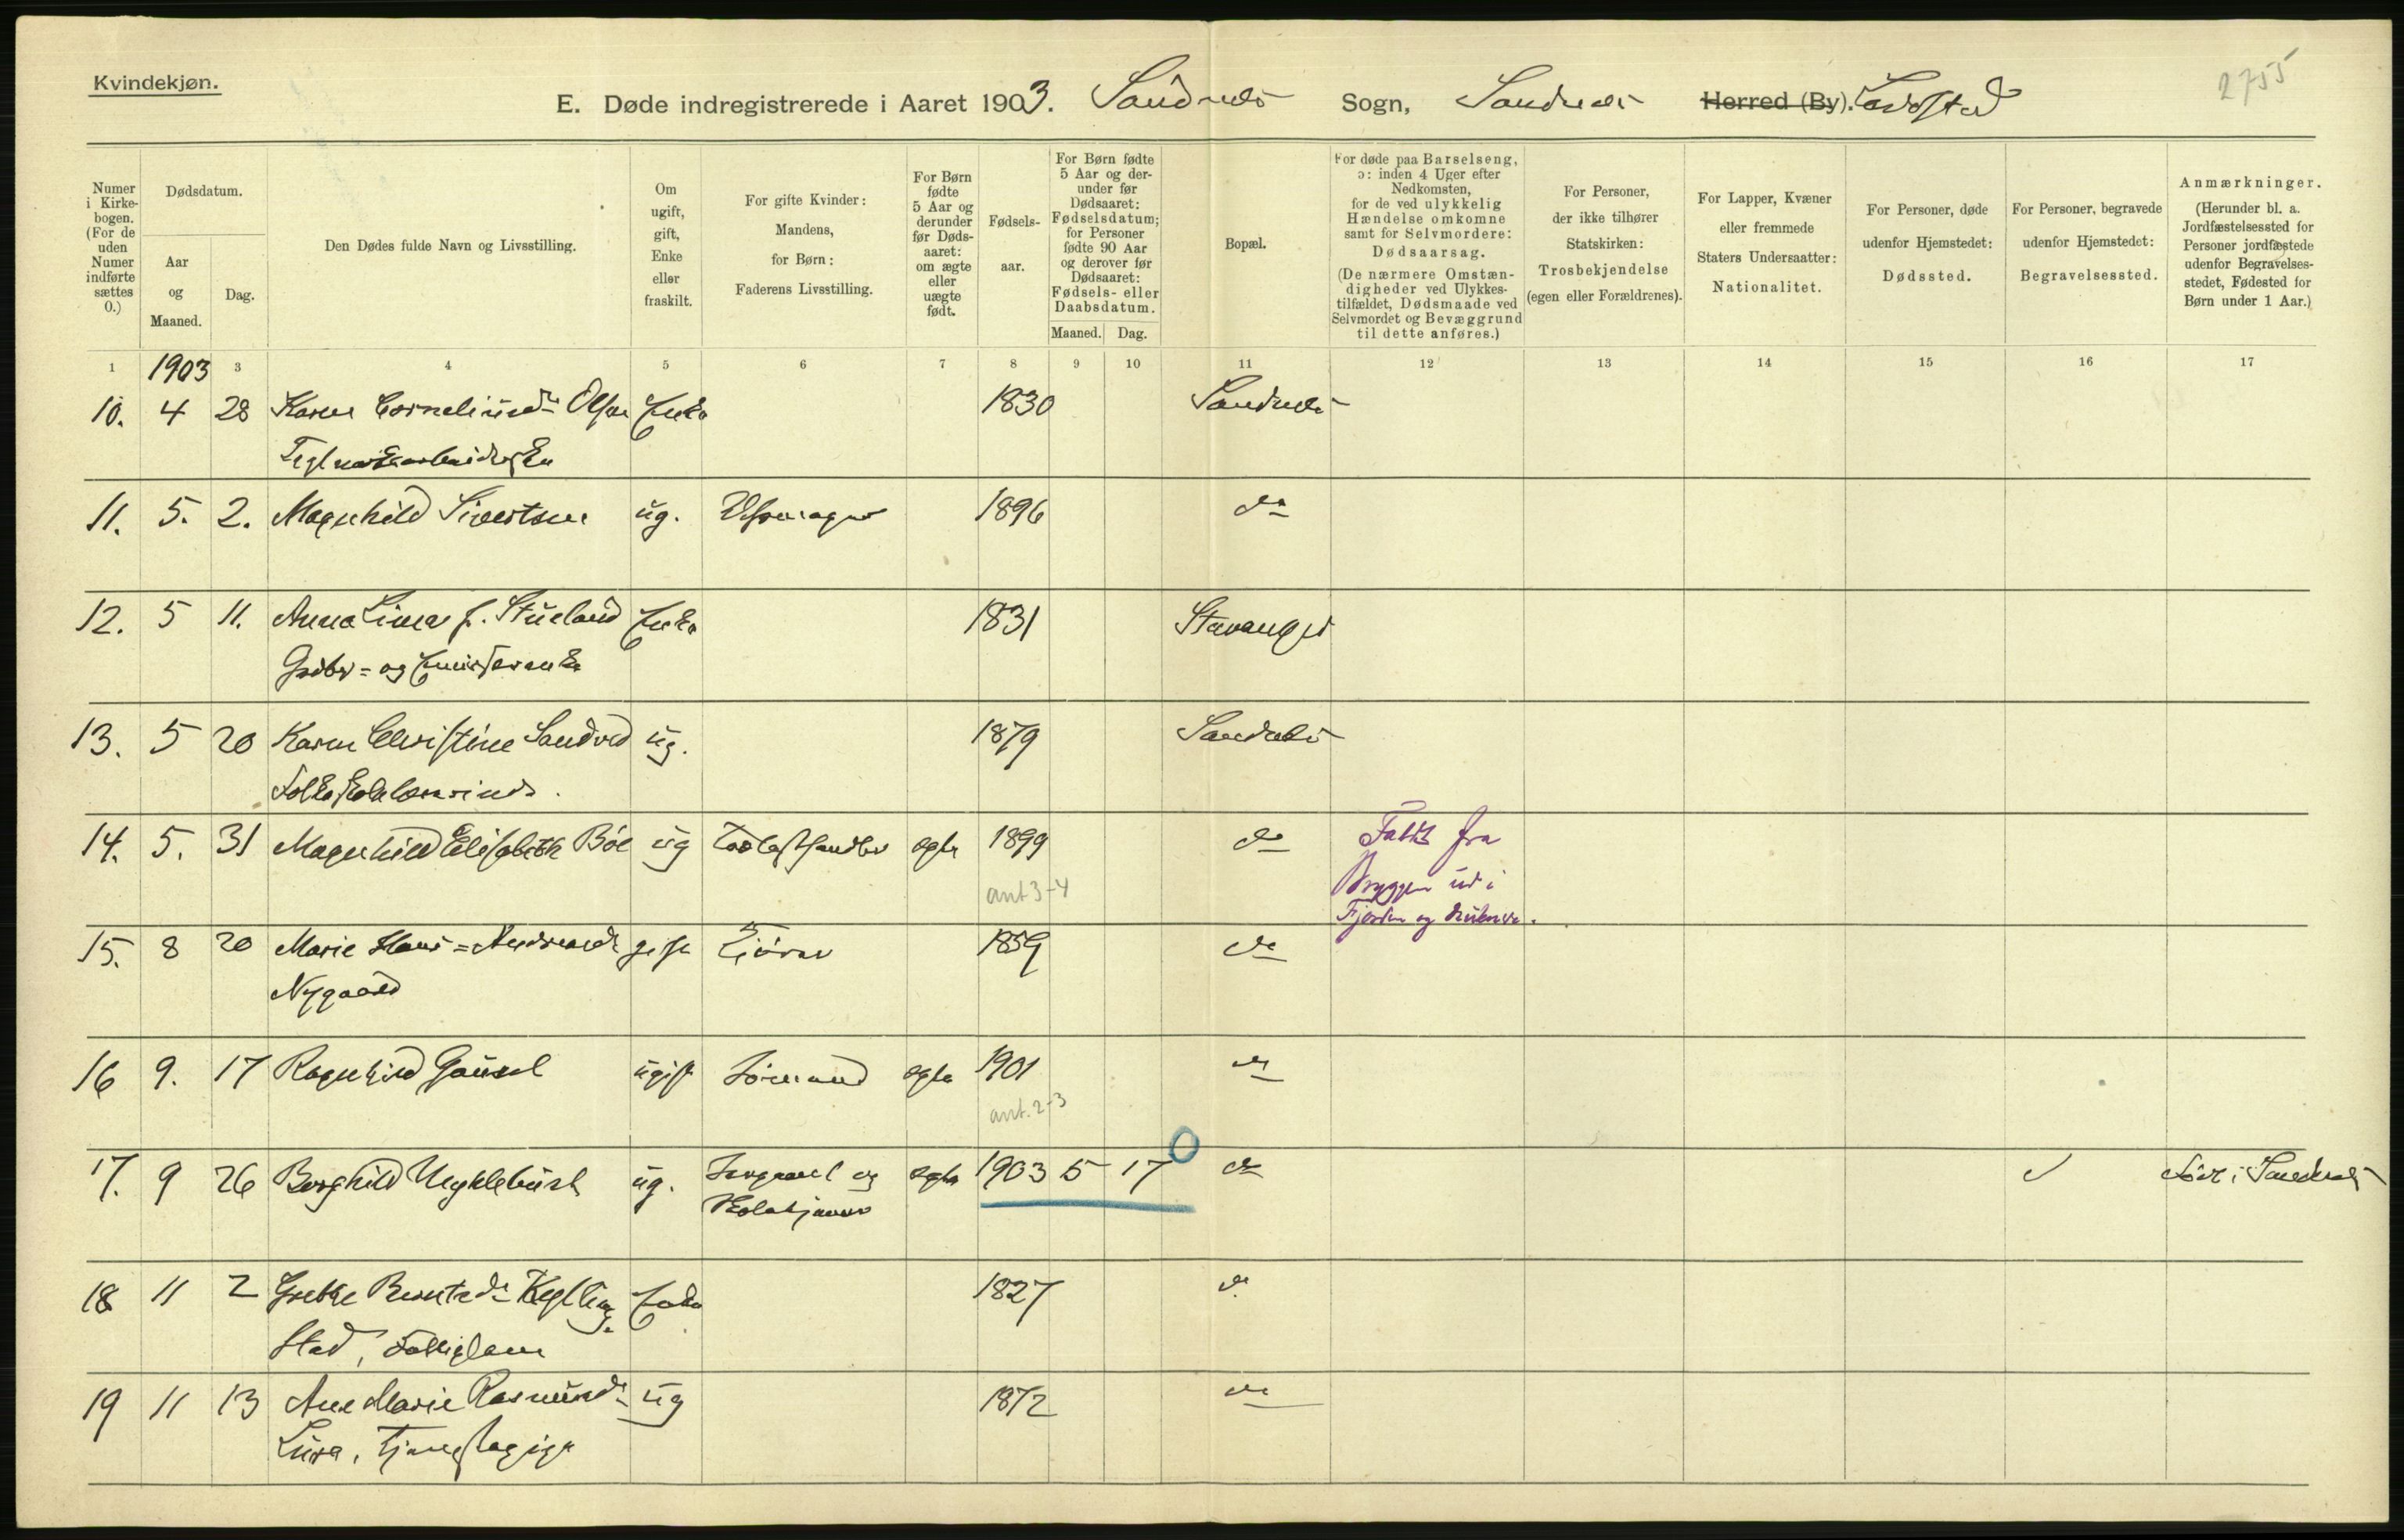 Kvindekjøn.
2755
E. Døde indregistrerede i Aaret 1903. Sandnes Sogn, Sandnes Herred (By). Ladsted
Numer i Kirkebogen. (For de uden Numer indførte sættes 0.)
Dødsdatum.
Aar og Maaned.
Dag.
Den Dødes fulde Navn og Livsstilling.
Om ugift, gift, Enke eller fraskilt.
For gifte Kvinder: Mandens, for Børn: Faderens Livsstilling.
For Børn fødte 5 Aar og derunder før Dødsaaret: om ægte eller uægte født.
Fødselsaar.
For Børn fødte 5 Aar og derunder før Dødsaaret: Fødselsdatum; for Personer fødte 90 Aar og derover før Dødsaaret: Fødsels- eller Daabsdatum.
Maaned. Dag.
Bopæl.
For døde paa Barselseng, ɔ: inden 4 Uger efter Nedkomsten, for de ved ulykkelig Hændelse omkomne samt for Selvmordere: Dødsaarsag. (De nærmere Omstændigheder ved Ulykkestilfældet, Dødsmaade ved Selvmordet og Bevæggrund til dette anføres.)
For Personer, der ikke tilhører Statskirken: Trosbekjendelse (egen eller Forældrenes).
For Lapper, Kvæner eller fremmede Staters Undersaatter: Nationalitet.
For Personer, døde udenfor Hjemstedet: Dødssted.
For Personer, begravede udenfor Hjemstedet: Begravelsessted.
Anmærkninger. (Herunder bl. a. Jordfæstelsessted for Personer jordfæstede udenfor Begravelsesstedet, Fødested for Børn under 1 Aar.)
1 1903 3 4 5 6 7 8 9 10 11 12 13 14 15 16 17
10. 4 28 Karen Corneliusd. Olsen Enke 1830 Sandnes
11. 5. 2. Magnhild Sivertsen ug. 1896 do
12. 5 11. Anna Lima f. Stueland Enke 1831 Stavanger
13. 5 20 Karen Christine Sandved ug. 1879 Sandnes
14. 5. 31 Magnhild Elisabeth Bøe ug ægte 1899 do Faldt fra
ant 3-4 Bryggen ud i
Fjorden og druknede.
15. 8 20 Marie Hans=Andreasd. gift Kjører 1859 do
Nygaard
16 9. 17 Ragnhild Gausel ugift Sømand ægte 1901 do
ant. 2-3
17. 9 26 Borghild Nyklebust ug. ægte 1903 5 17 0 do Født i Sandnes
18 11 2 Grethe Berntsd. Kylling- Enke 1827 do
stad, Fattiglem
19 11 13 Ane Marie Rasmusd. ug 1872 do
Lura, Tjenestepige